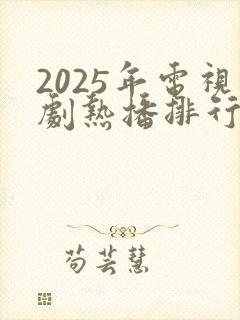 2025年電視
劇熱播排行
苟芸慧